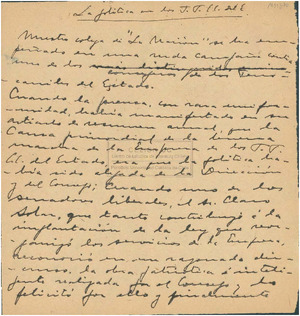 La política en los F.F. C.C. del E
Nuestro colega de "La Nación" se ha em-
peñado en una ruda campaña contra
uno de los
consejeros de los Ferro-
carriles del Estado.
Cuando la prensa, con rara unifor-
midad, había manifestado en sus
artículos de resumen anual, que la
causa primordial de la buena
marcha de la Empresa de los F.F.
C.C. del Estado era que la política ha-
bía sido alejada de la Dirección
y del Consejo; cuando uno de los
senadores liberales, el sr. Claro
Solar, que tanto contribuyó á la
implantación de la ley que reor-
ganizó los servicios de la Empresa,
reconoció en un razonado dis-
curso, la obra patriótica é
realizada por el Consejo y lo
felicitó por ello y finalmente